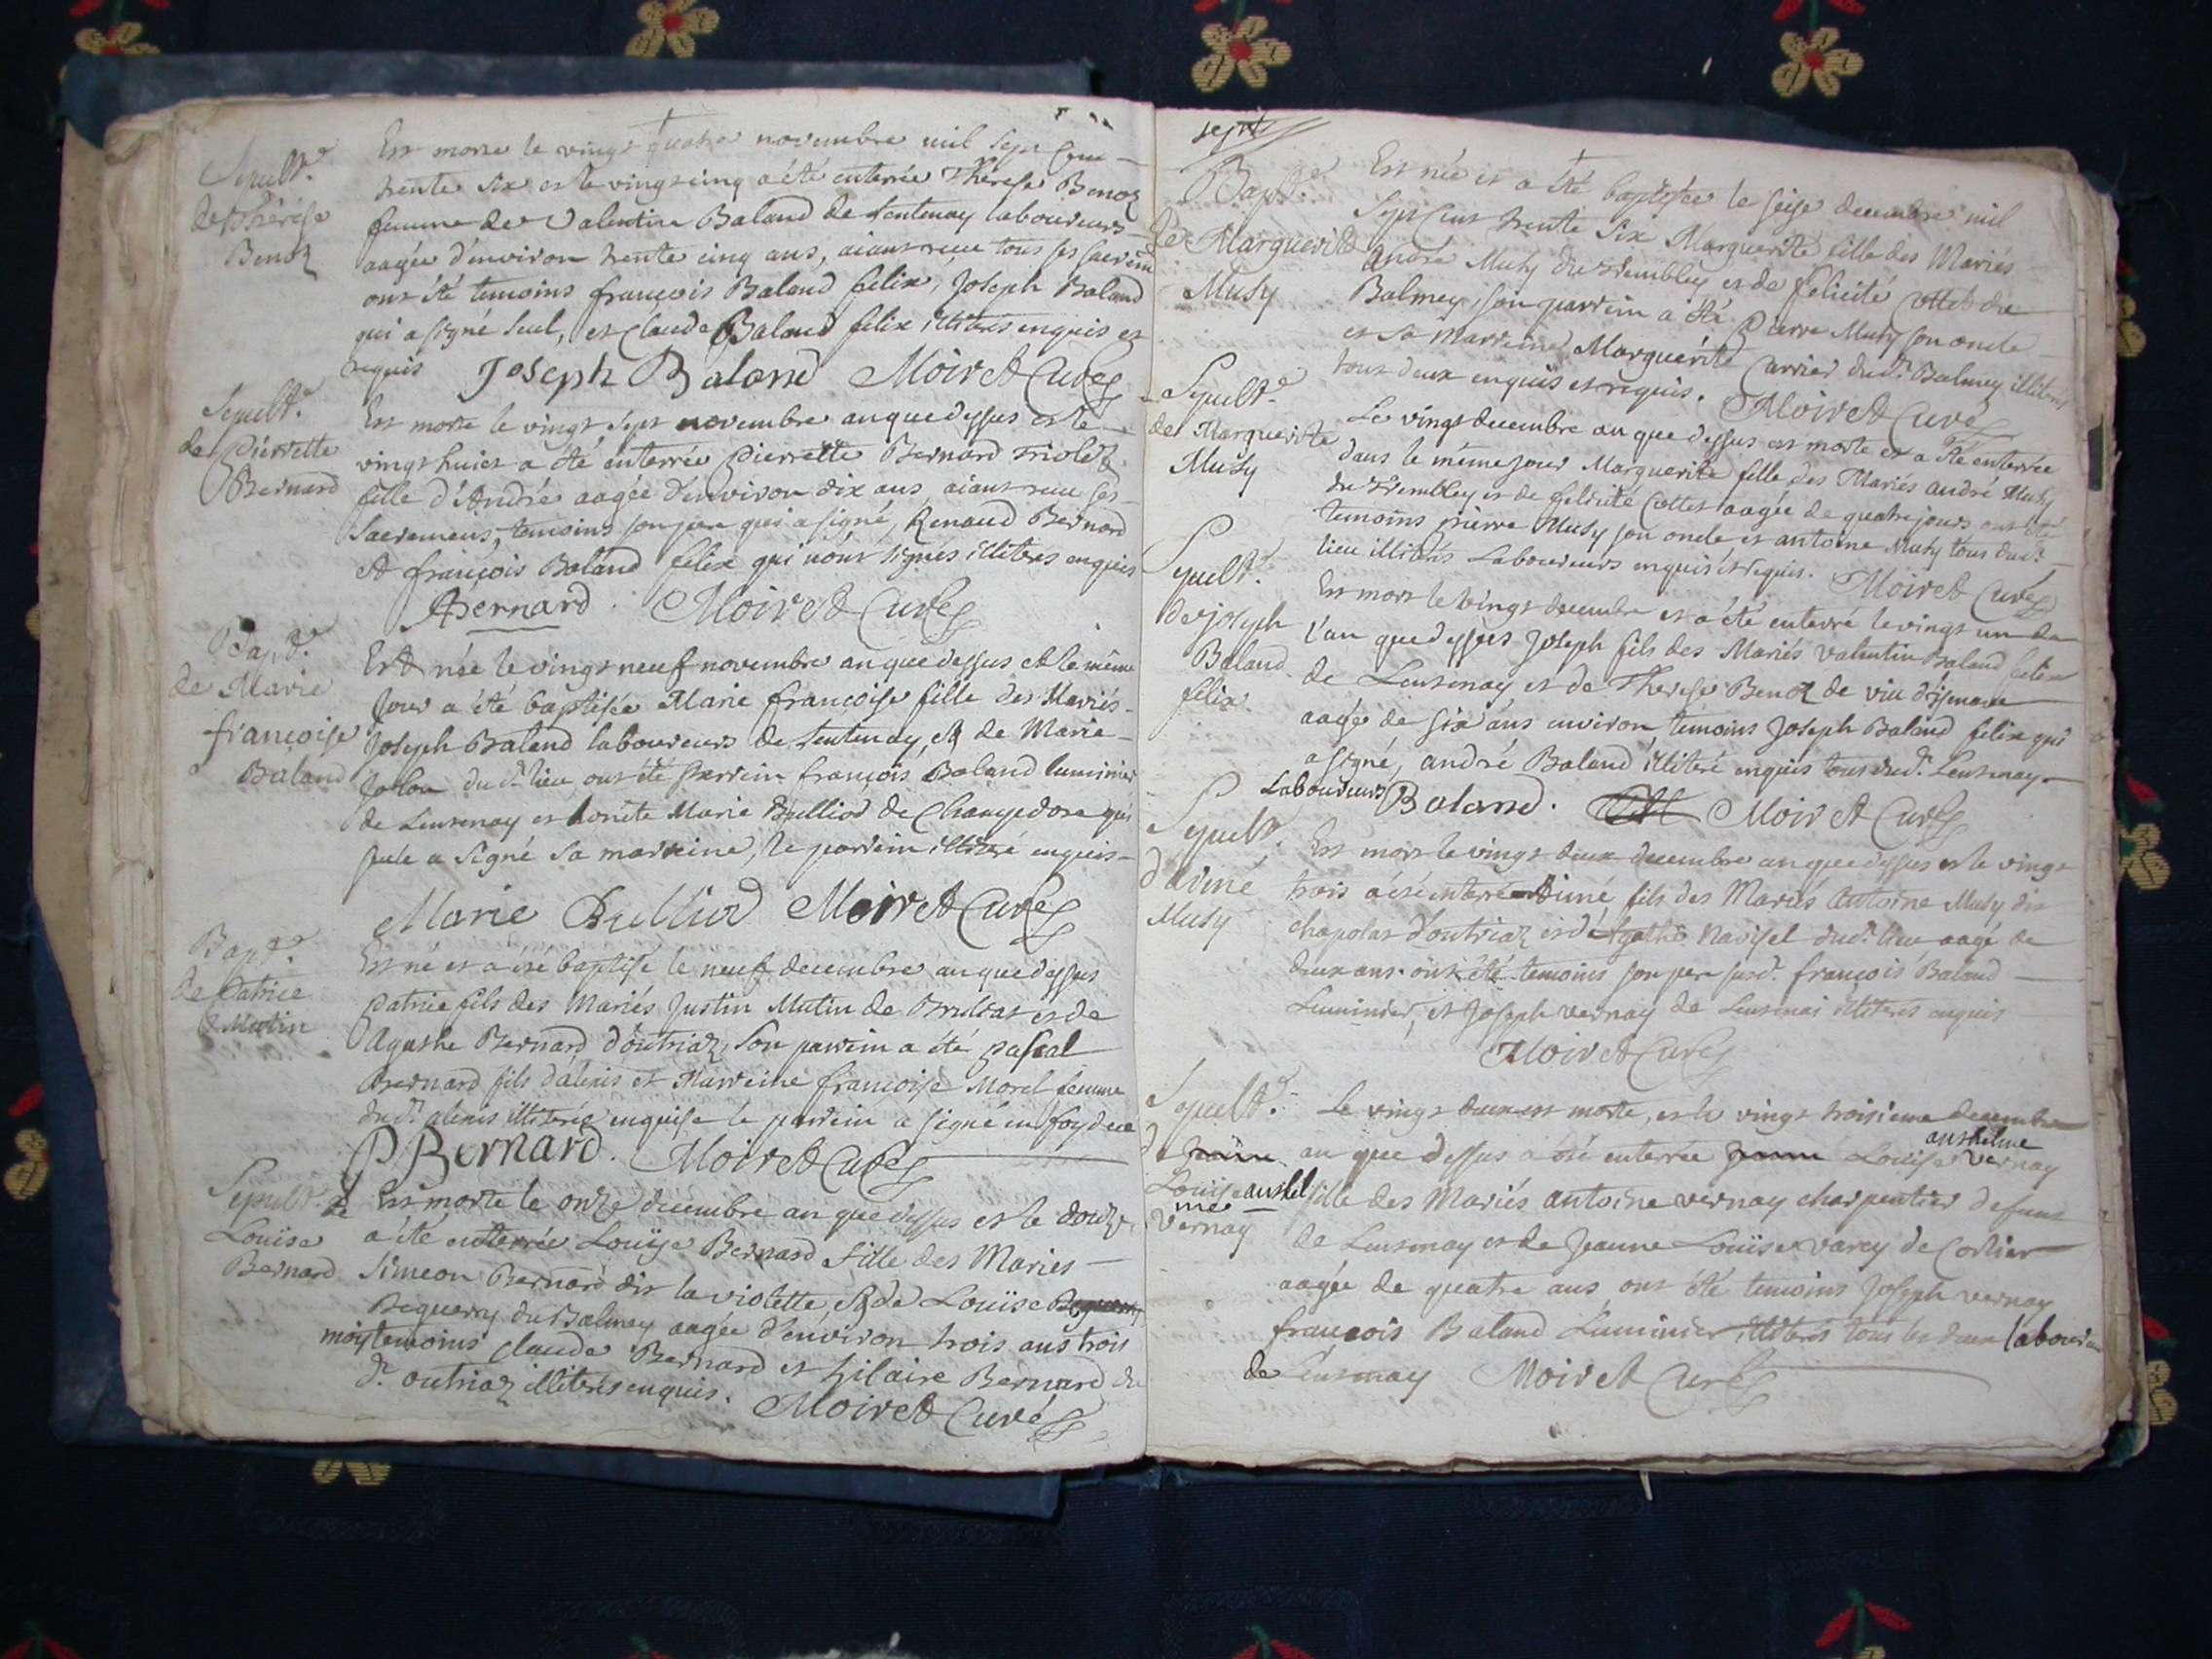 Sepult.e
de Thérèse
Benoz
Est morte le vingt quatre novembre mil sept cent
trente six et le vingt cinq a été enterrée Thérèse Benoz
femme de Valentin Baland de Lentenay laboureurs
aagée d'environ trente cinq ans, aiant receu tous ses sacrem
ont été temoins françois Baland felix, Joseph Baland
qui a signé seul, et Claude Baland felix illiterés enquis et
requis Joseph Baland Moiret Curé
Sepult.e
de Pierrette
Bernard
Est morte le vingt sept novembre an que dessus et le
vingt huict a été enterrée Pierrette Bernard triolet
fille d'André aagée d'environ dix ans, aiant receu ses
Sacremens, temoins son pere qui a signé, Renaud Bernard
et françois Baland felix qui n'ont signés illiterés enquis
ABernard. Moiret Curé
Bapt.e
de Marie
françoise
Baland
Est née le vingt neuf novembre an que dessus et le même
Jour a été baptisée Marie françoise fille des Mariés
Joseph Baland laboureurs de Lentenay, et de Marie
Jolon dud. lieu, ont été parrein françois Baland luminier
de Lentenay et honête Marie Bulliod de Champdore qui
seule a signé sa marreine, le parrein illiteré enquis
Marie Bulliod Moiret Curé
Bapt.e
de Patrice
Mutin
Est né et a été baptisé le neuf decembre an que dessus
patrice fils des Mariés Justin Mutin de Brulsat et de
Agathe Bernard d'outriaz, son parrein a été pascal
Bernard fils d'alexis et Marreine françoise Morel femme
dud. alexis illiterée enquise le parrein a signé en foy de ce
PBernard. Moiret Curé
Sepult.e de
Louïse
Bernard
Est morte le onze decembre an que dessus et le douze
a été enterrée Louïse Bernard fille des Mariés
Simeon Bernard dit la violette, et de Louïse
Beguerry du Balmey aagée d'environ trois ans trois
mois temoins Claude Bernard et hilaire Bernard du
d. outriaz illiterés enquis. Moiret Curé
sept
Bapt.e
de Marguerite
Musy
Est née et a été baptisée le seise decembre mil
Sept cent trente six Marguerite fille des Mariés
André Musy du trembley et de felicité Cottet du
Balmey, son parrein a été Pierre Musy son oncle
et sa marreine Marguérite Carrier dud. Balmey illiterés
tous deux enquis et requis. Moiret Curé
Sepult.e
de Marguerite
Musy
Le vingt decembre an que dessus est morte et a été enterrée
dans le même jour Marguerite fille des Mariés andré Musy
du trembley et de felicité Cottet aagée de quatre jours ont été
temoins pierre Musy son oncle et antoine Musy tous dud.
lieu illiterés Laboureurs enquis et requis. Moiret Curé
Sepult.e
de joseph
Baland
felix
Est mort le vingt decembre et a été enterré le vingt un de
l'an que dessus Joseph fils des Mariés valentin Baland felix
de Lentenay et de Therese Benoz de vieu d'isenave
aagé de six ans environ, temoins Joseph Baland felix qui
a signé, andré Baland illiteré enquis tous dud. Lentenay
Laboureurs Baland. Moiret Curé
Sepult.e
d'aimé
Musy
Est mort le vingt deux decembre an que dessus et le vingt
trois a été enterré Aimé fils des Mariés Antoine Musy dit
chapolat d'outriaz et d'Agathe Navisel dud. lieu aagé de
deux ans. ont été temoins son pere susd. françois Baland
Luminier, et Joseph vernay de Lentenai illiterés enquis
Moiret Curé
Sepult.e
de
Louïse anthel
me
Vernay
Le vingt deux est morte, et le vingt troisieme decembre
anthelme
an que dessus a été enterrée Louïse vernay
fille des Mariés antoine vernay charpentier defunt
de Lentenay et de Jeanne Louïse varey de Corlier
aagée de quatre ans ont été temoins Joseph vernay
françois Baland Luminier, illiterés tous les deux laboureurs
de Lentenay Moiret Curé